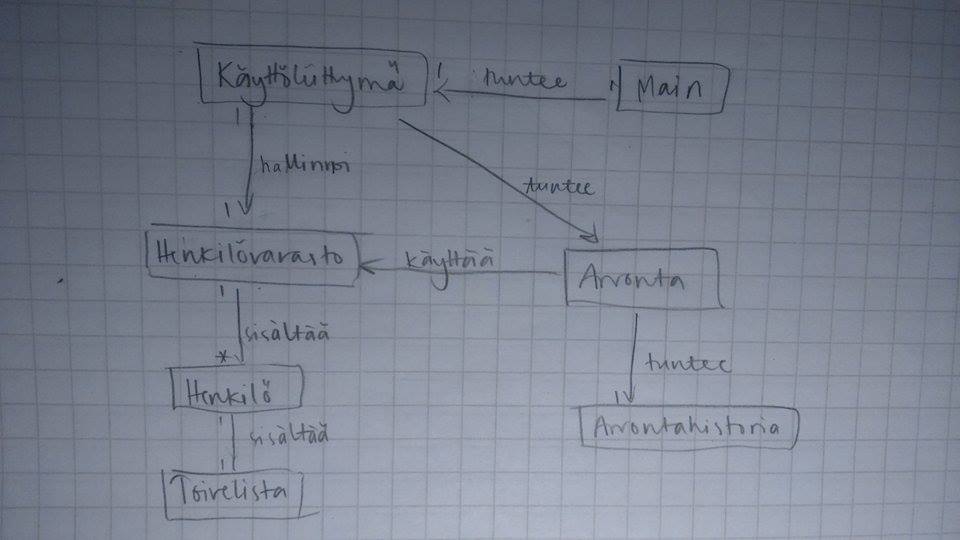 Käyttöliittymä
1
tuntee
1
Main
1
hallinnoi
tuntee
1
Henkilövarasto
käyttää
Arvonta
1
sisältää
*
tuntee
Henkilö
1
Arvontahistoria
1
sisältää
1
Toivelista